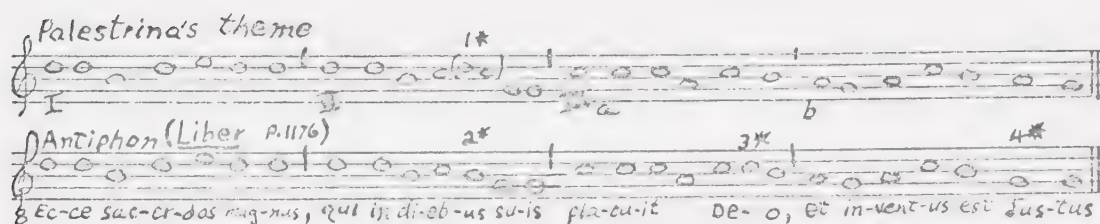 Palestrina's theme
1*
I II III a b
Antiphon (Liber p.1176)
2* 3* 4*
8 Ec-ce sac-er-dos mag-nus, qui in di-eb-us su-is pla-cu-it De-o, et in-vent-us est jus-tus